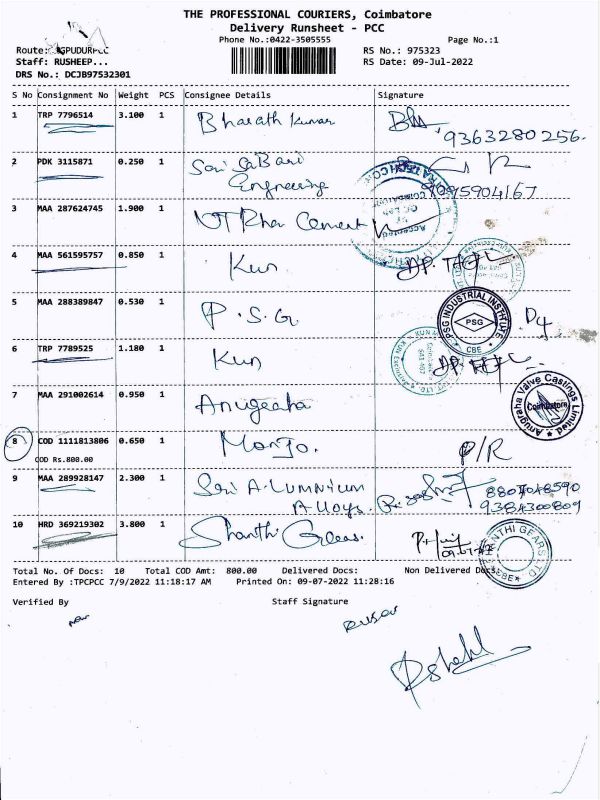 THE PROFESSIONAL COURIERS, Coimbatore
Delivery Runsheet - PCC
Phone No.:0422-3505555 Page No.:1
Route: GPUDURPCC RS No.: 975323
Staff: RUSHEEP... RS Date: 09-Jul-2022
DRS No.: DCJB97532301
S No Consignment No Weight PCS Consignee Details Signature
1 TRP 7796514 3.100 1 Bharath Kumar 9363280256.
2 PDK 3115871 0.250 1 Sri Sai Bari
Engineering
3 MAA 287624745 1.900 1 Cement
4 MAA 561595757 0.850 1 Kun
5 MAA 288389847 0.530 1 P.S.G
PSG INDUSTRIAL INSTITUTE
PSG
CBE
6 TRP 7789525 1.180 1 Kun
7 MAA 291002614 0.950 1 Anugraha
Anugraha Valve Castings Limited
Coimbatore
8 COD 1111813806 0.650 1 Manjo. P/R
COD Rs.800.00
9 MAA 289928147 2.300 1 Sri ALUMNIUM 8807048590
Alloys. 9384300809
10 HRD 369219302 3.800 1 Shanthi Gears.
SHANTHI GEARS LTD
CBE
Total No. Of Docs: 10 Total COD Amt: 800.00 Delivered Docs: Non Delivered Docs:
Entered By :TPCPCC 7/9/2022 11:18:17 AM Printed On: 09-07-2022 11:28:16
Verified By Staff Signature